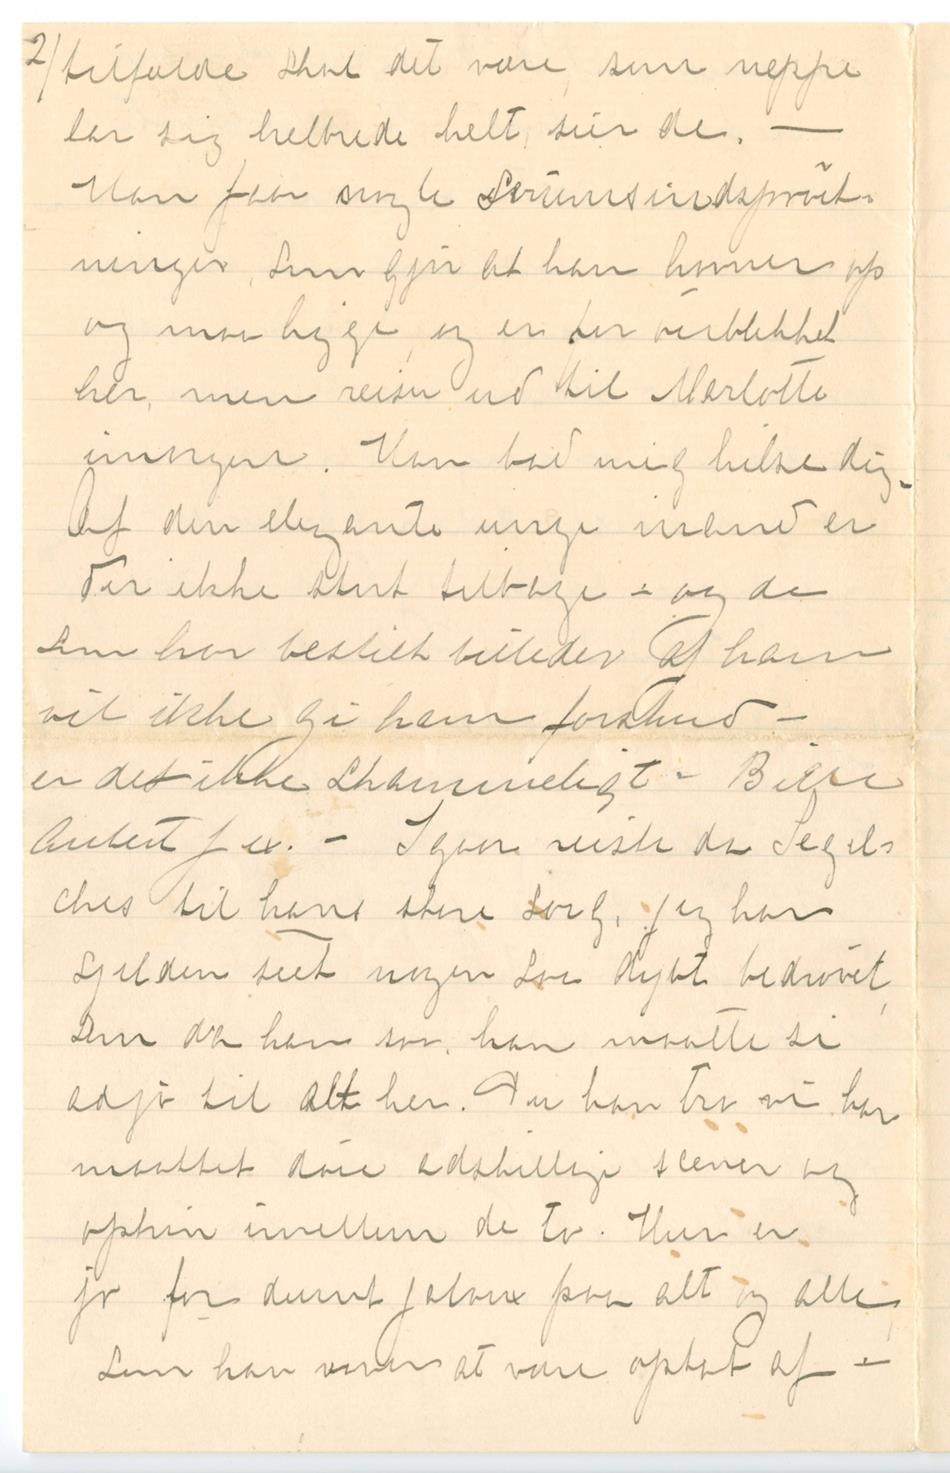 2/ tilfælde skal det være, som neppe
lar sig helbrede helt, siér de. —
Han faar nogle Serumsindsprøit-
ninger, som gjør at han hovner op
og maa ligge, og er for øieblikket
her, men reiser ud til Marlotte
imorgen. Han bad mig hilse dig.
Af den elegante unge mand er
der ikke stort tilbage – og de
som har bestilt billeder af ham
vil ikke gi ham forskud –
er det ikke skammeligt –
Aubert f ex. – Igaar reiste da Segel-
ches til hans store sorg, jeg har
sjelden seet nogen saa dybt bedrøvet,
som da han saa, han maatte si
adjø til alt her. Du kan tro vi har
maattet døie adskillige scener og
optrin imellem de to. Hun er
jo for dumt jaloux paa alt og alle,
som han synes at være optat af –